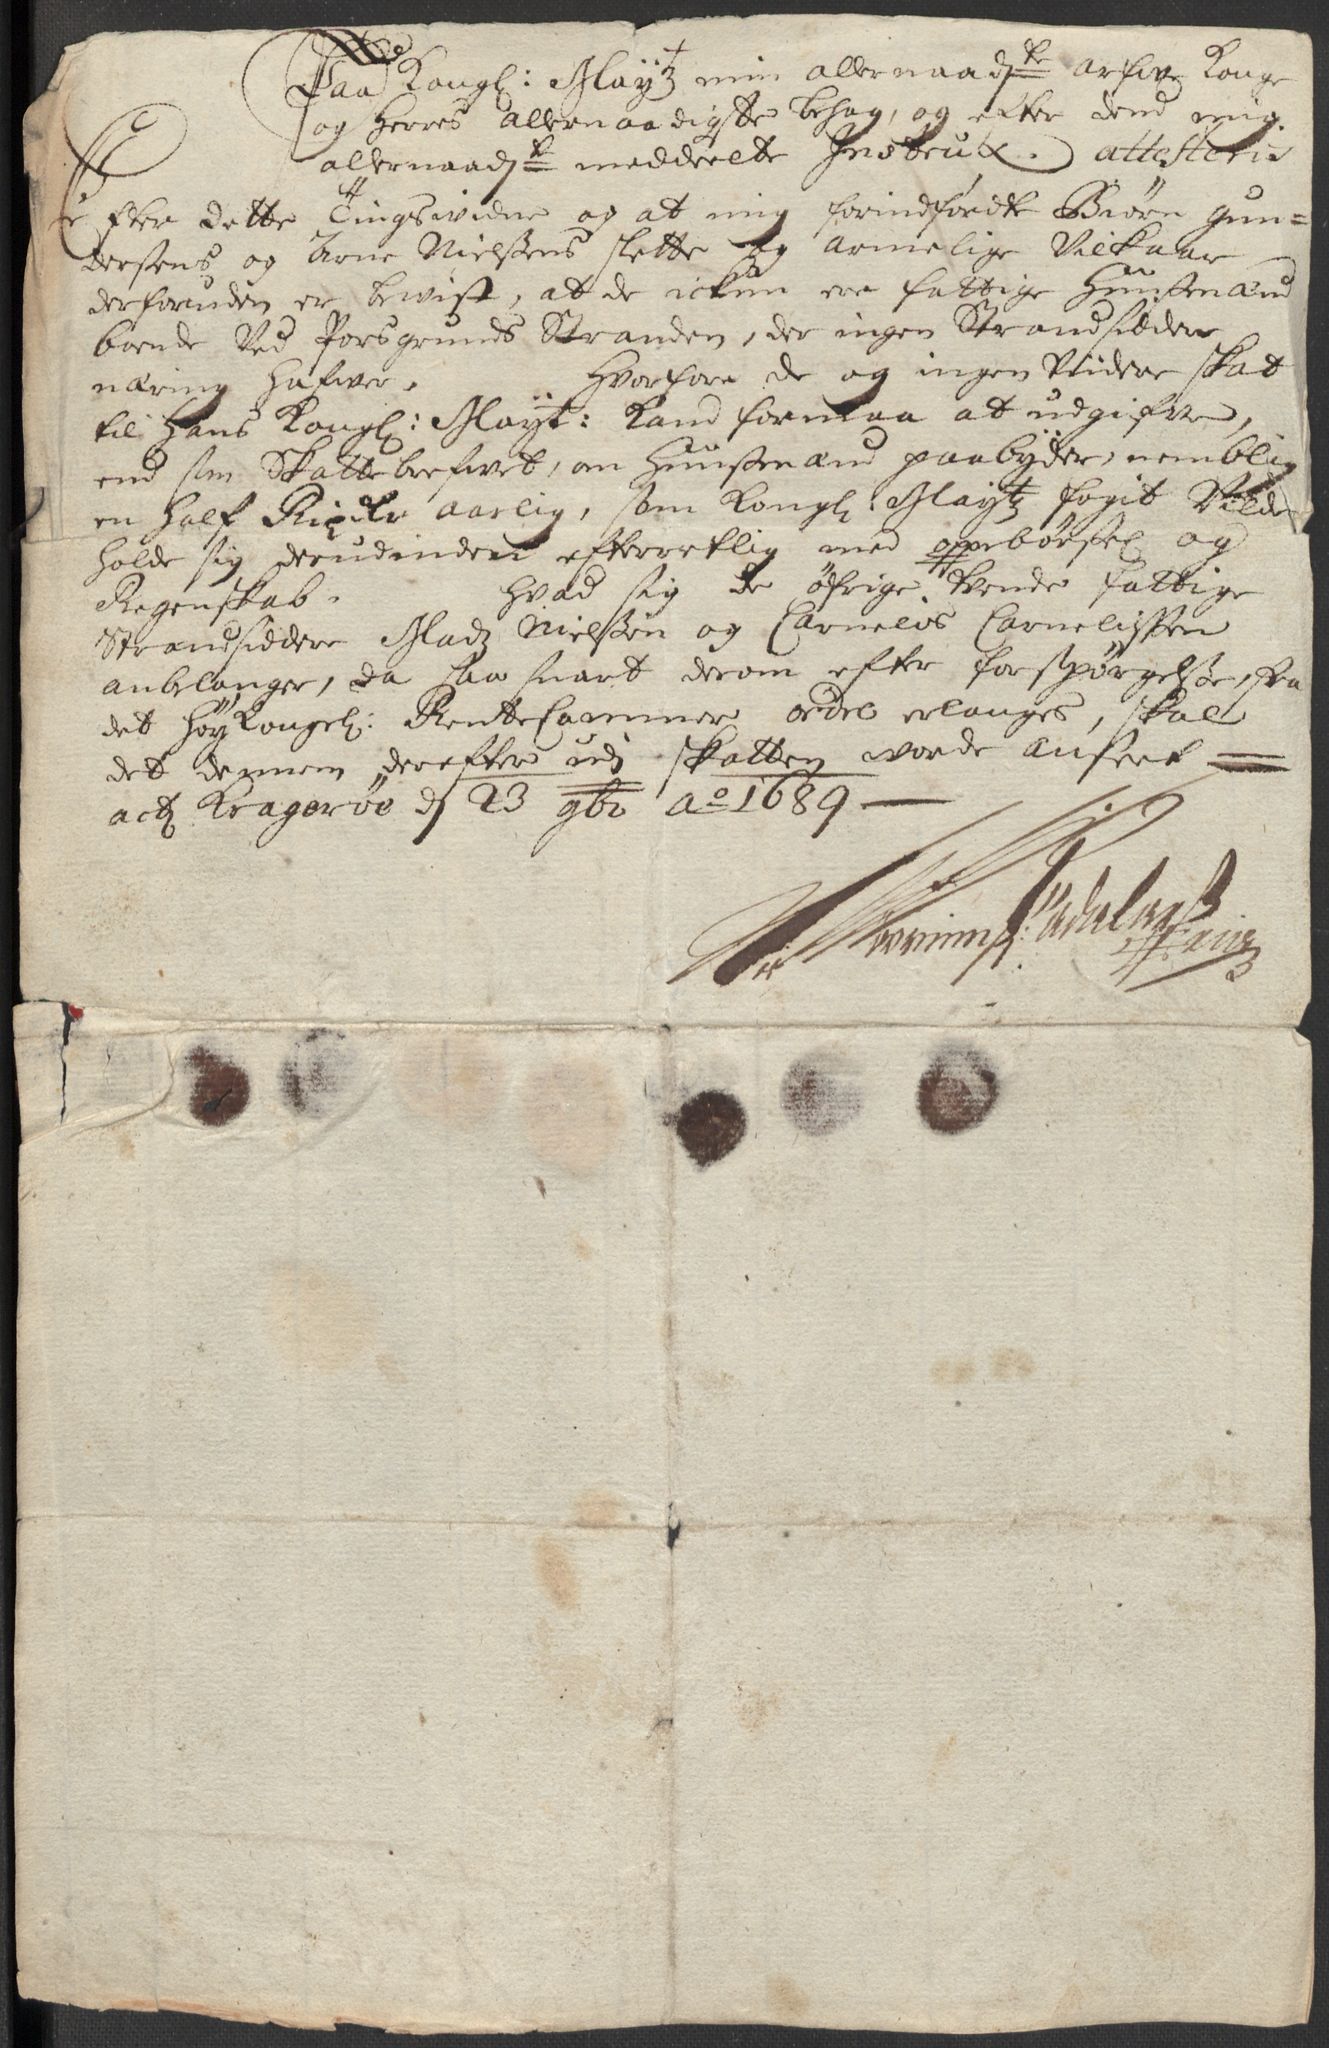 Paa Kongl: Maytz min allernaadste arfwe Konge
og Herres allernaadigste behag, og efter dend mig
allernaadste meddeelte Instrux. attesteris
efter dette Tingswidne og at mig forindfordte Biörn Gun=
dersens og Arne Nielssens slette og armelige Vilkaar
derforuden er bewist, at de ickun ere fattige Huusmænd
boende Ved Porsgrunds Stranden, der ingen Strandsidder
næring hafwer. Hvorfore de og ingen Viidere skat
til Hans Kongl: Mayt: Kand formaa at udgifve,
end som Skattebrefwet, om Huusmænd paabyder, nemblig
en half Rixdlr aarlig, som Kongl: Maytz fogit Vilde
holde sig derudinden efterretlig med oppebörsel og
Regenskab. Hvad sig de öfrige tvende fattige
Strandsiddere Madz Nielssen og Carnelis Carnelissen
anbelanger, da saa snart derom efter forspörgelse, fra
det höy Kongel: RenteCammer ordre erlanges, skal
det dennem derefter udi skatten worde anseet
actz Kragerøe d 23 9br ao 1689